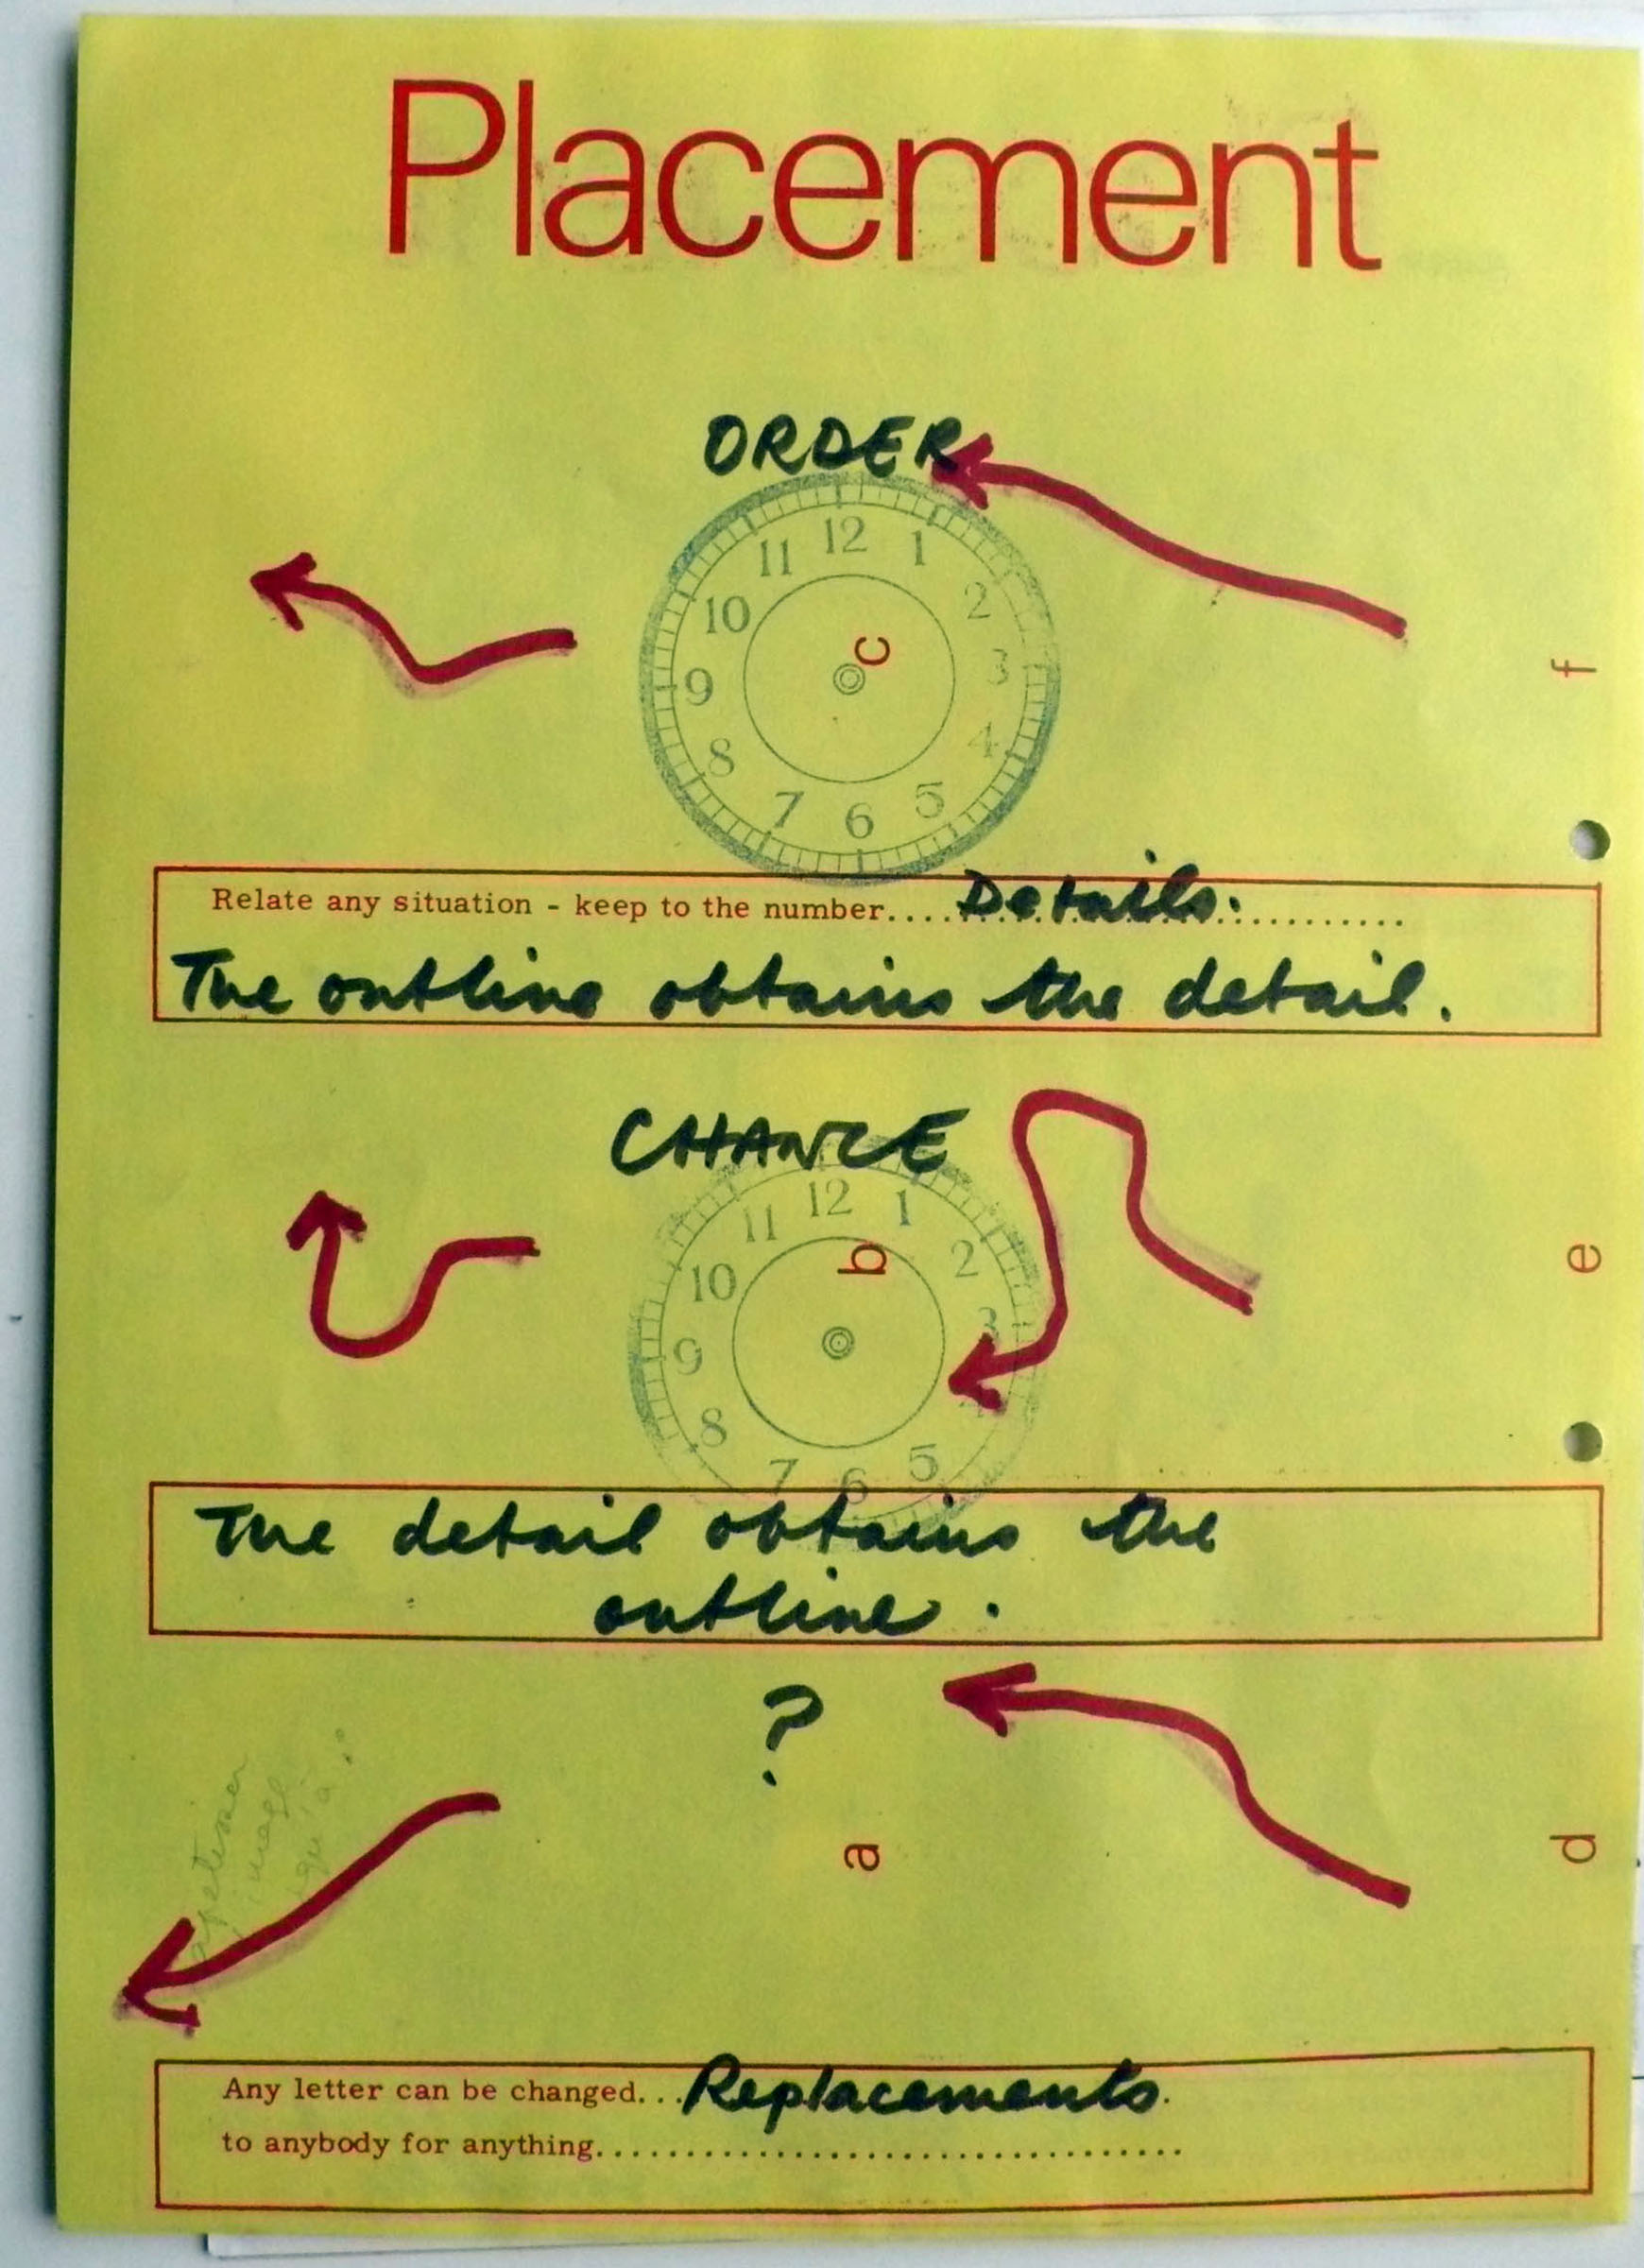 Placement
ORDER
12
11 1
10 2
c
9 3
f
8 4
7 5
6
Relate any situation - keep to the number.... Details. ............
The outline obtains the detail.
CHANCE
12
11 1
10 b 2
e
9 3
8 4
7 6 5
The detail obtains the
outline.
?
a d
Any letter can be changed... Replacements.
to anybody for anything.................................